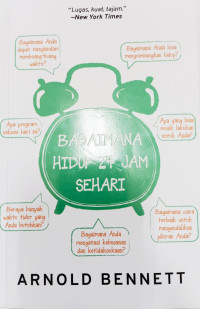 "Lugas, kuat, tajam."
—New York Times
Bagaimana Anda
dapat menghindari
membuang-buang
waktu?
Bagaimana Anda bisa
menyeimbangkan hidup?
Apa program
sehari-hari ini?
Apa yang bisa
mulai lakukan
untuk Anda?
BAGAIMANA
HIDUP 24 JAM
SEHARI
Berapa banyak
waktu tidur yang
Anda butuhkan?
Bagaimana Anda
mengatasi kelemasan
dan ketidaksukaan?
Bagaimana cara
terbaik untuk
mengendalikan
pikiran Anda?
ARNOLD BENNETT